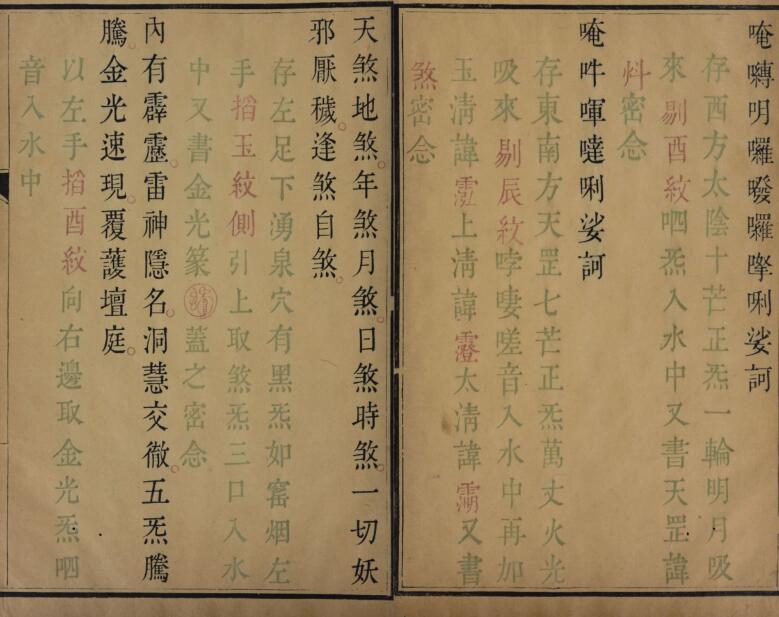 唵囀明囉發囉擊唎娑訶
存西方太陰十芒正炁一輪明月吸
來剔酉紋呬炁入水中又書天罡諱
密念
唵吽㖇噠唎娑訶
存東南方天罡七芒正炁萬丈火光
吸來剔辰紋哱嘍嗟音入水中再加
玉淸諱上淸諱太淸諱又書
煞密念
天煞地煞。年煞月煞。日煞時煞。一切妖
邪厭穢。逢煞自煞。
存左足下湧泉穴有黑炁如窰烟左
手搯玉紋側引上取煞炁三口入水
中又書金光篆蓋之密念
內有霹靂。雷神隱名。洞慧交徹。五炁騰
騰。金光速現。覆護壇庭。
以左手搯酉紋向右邊取金光炁呬
音入水中